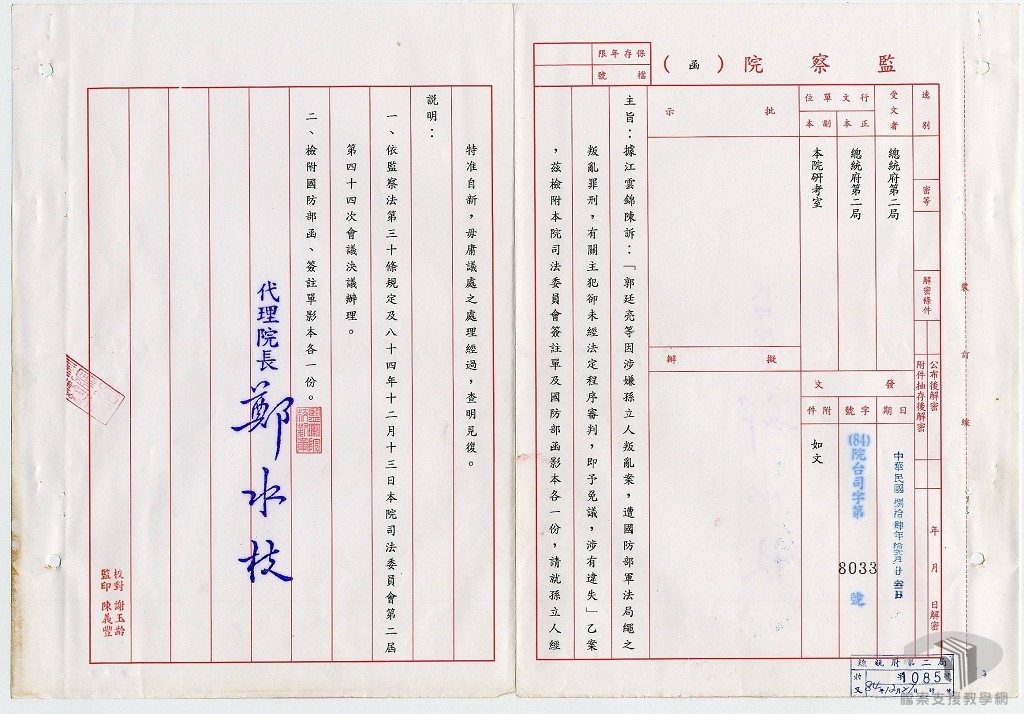 監察院（函）
保存年限
檔號
速別
密等
解密條件
公布後解密
附件抽存後解密
年月日解密
受文者
總統府第二局
行文單位
正本
總統府第二局
副本
本院研考室
發文
日期
中華民國捌拾肆年拾貳月廿
字號
(84)院台司字第 8033 號
附件
如文
批示
擬辦
主旨：據江雲錦陳訴：「郭廷亮等因涉嫌孫立人叛亂案，遭國防部軍法局繩之
叛亂罪刑，有關主犯卻未經法定程序審判，即予免議，涉有違失」乙案
，茲檢附本院司法委員會簽註單及國防部函影本各一份，請就孫立人經
特准自新，毋庸議處之處理經過，查明見復。
說明：
一、依監察法第三十條規定及八十四年十二月十三日本院司法委員會第二屆
第四十四次會議決議辦理。
二、檢附國防部函、簽註單影本各一份。
代理院長 鄭水枝
校對 謝玉齡
監印 陳義豐
裝訂線
總統府第二局
收文 字 1085 號
84年12月27日
檔案支援教學網